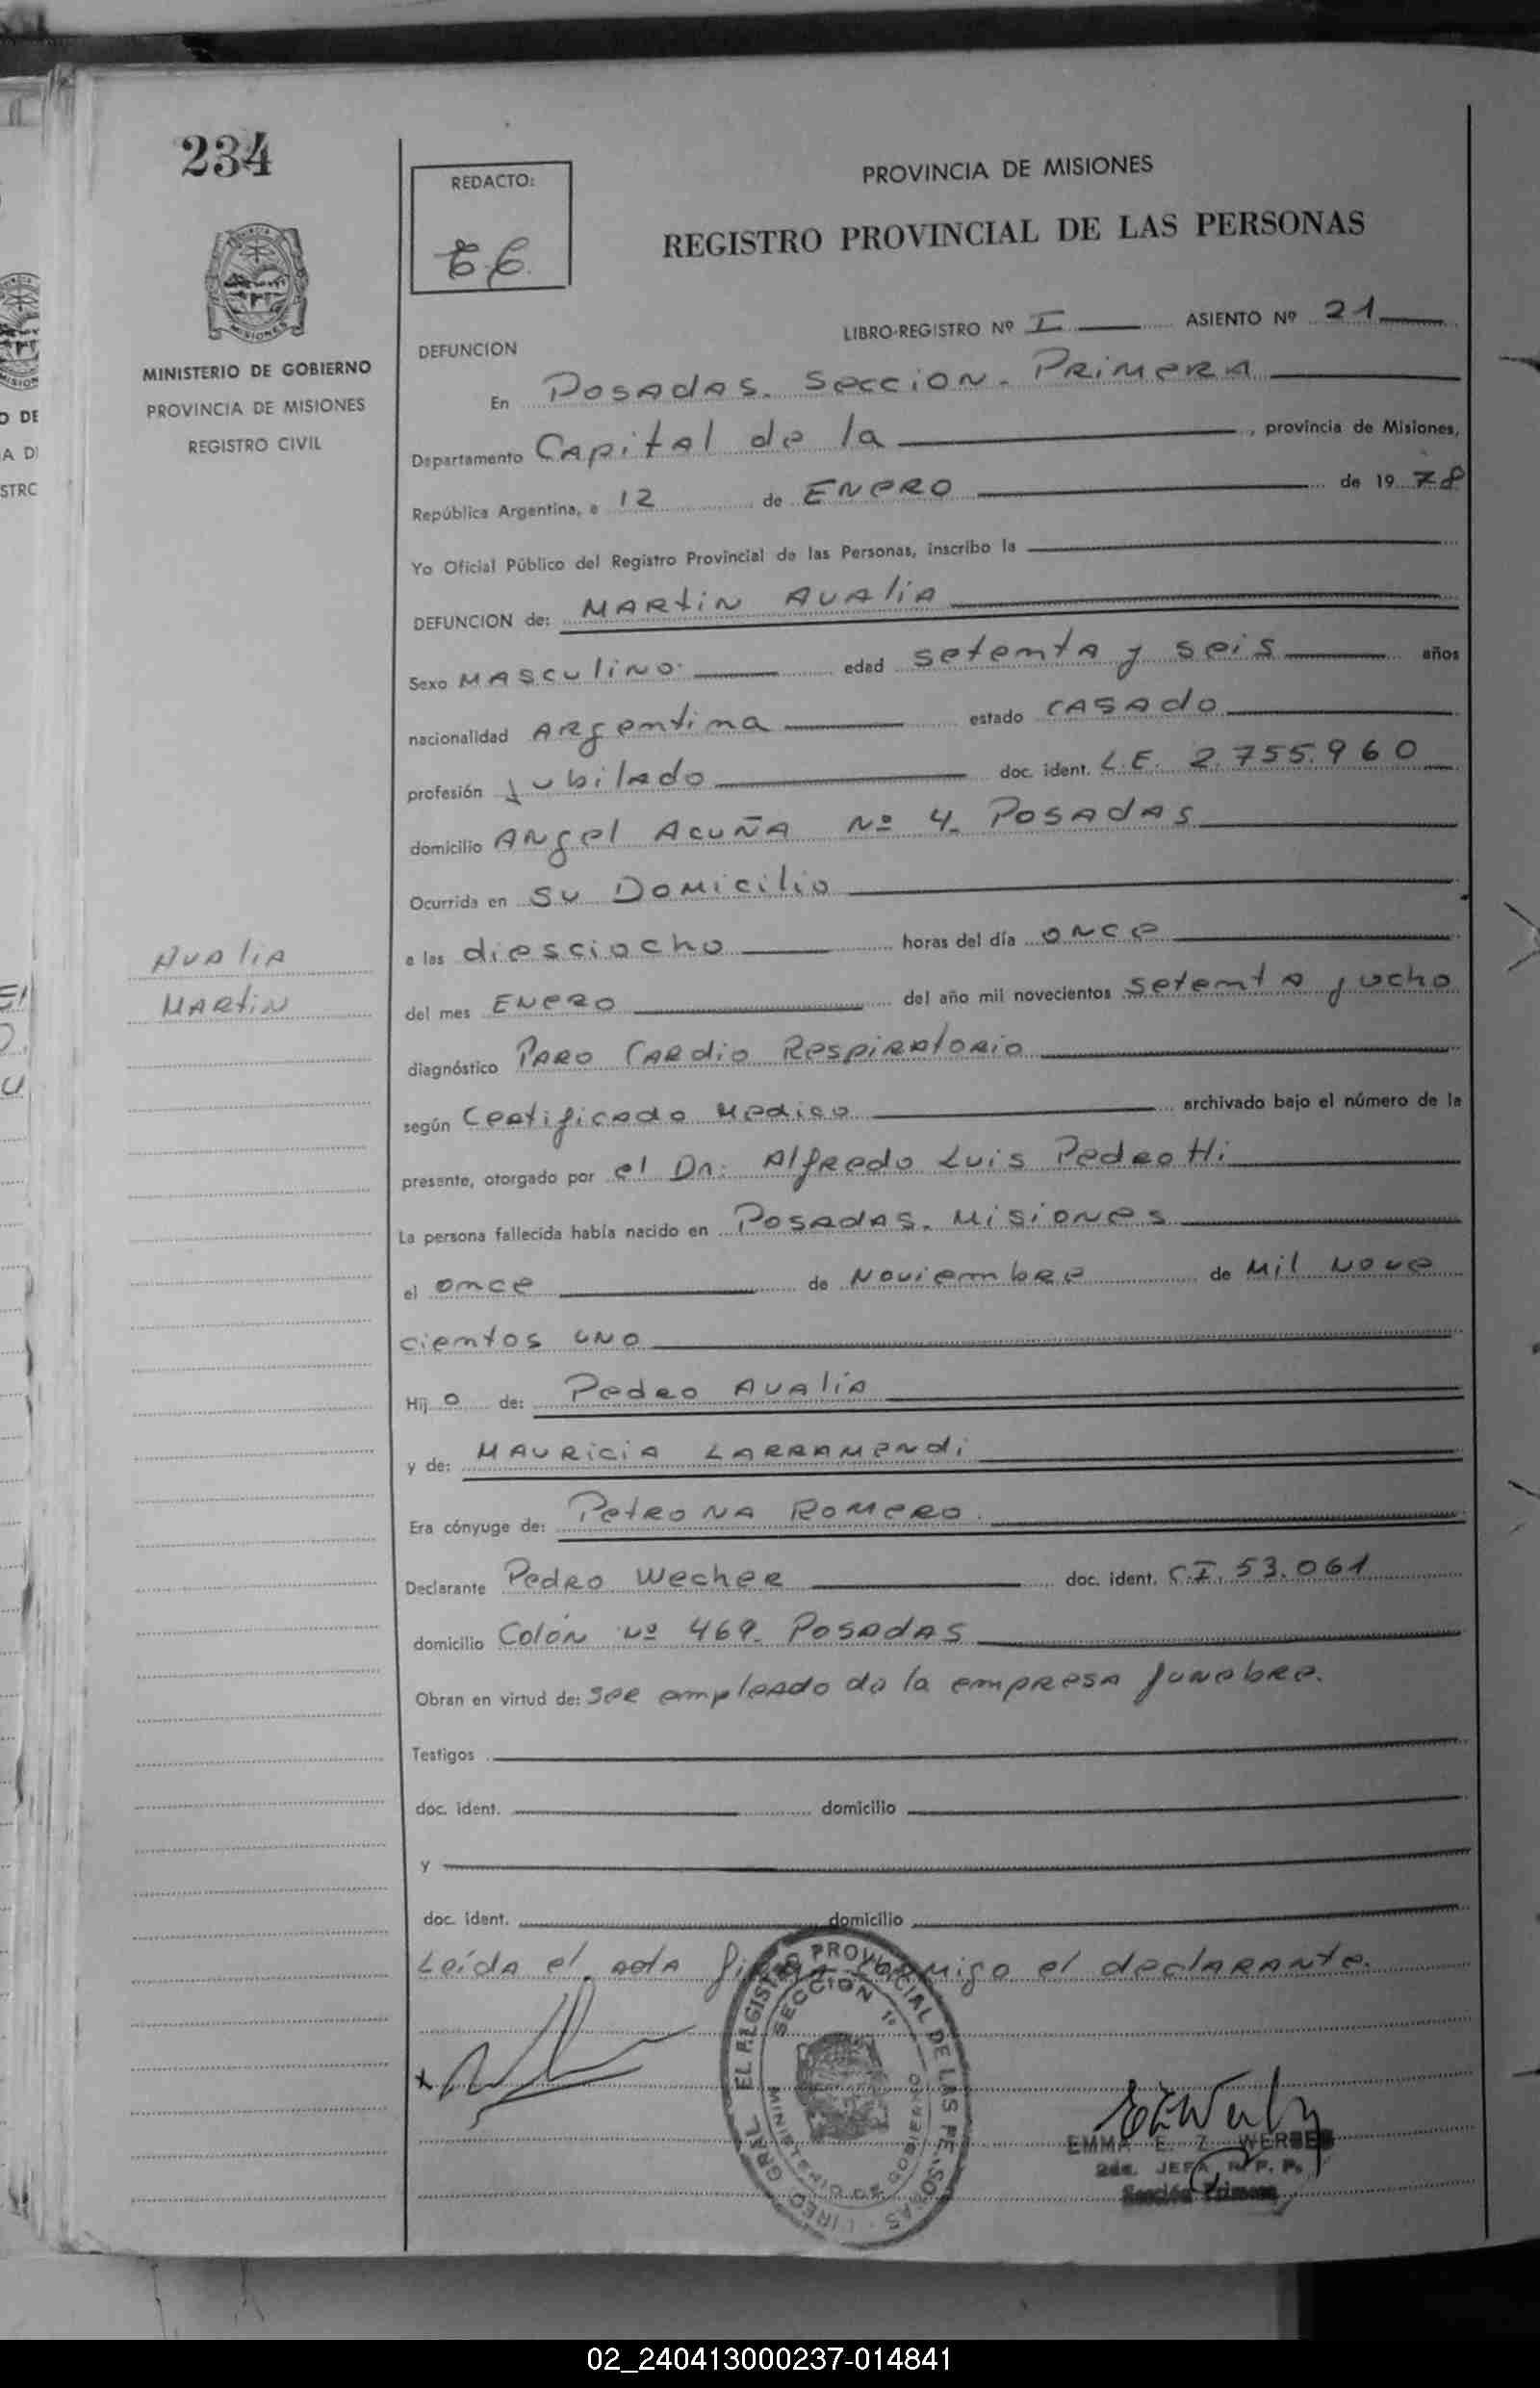 234
MINISTERIO DE GOBIERNO
PROVINCIA DE MISIONES
REGISTRO CIVIL
AVALIA
MARTIN
REDACTO:
PROVINCIA DE MISIONES
REGISTRO PROVINCIAL DE LAS PERSONAS
LIBRO-REGISTRO Nº I ASIENTO Nº 21
DEFUNCION
En Posadas. Seccion. Primera
Departamento Capital de la , provincia de Misiones,
República Argentina, a 12 de ENERO de 1978
Yo Oficial Público del Registro Provincial de las Personas, inscribo la
DEFUNCION de: MARTIN AVALIA
Sexo Masculino. edad setenta y seis años
nacionalidad Argentina estado CASADO
profesión Jubilado doc. ident. L.E. 2.755.960
domicilio Angel Acuña Nº 4. Posadas
Ocurrida en su Domicilio
a las diesciocho horas del día once
del mes ENERO del año mil novecientos setenta y ocho
diagnóstico Paro Cardio Respiratorio
según Certificado Medico archivado bajo el número de la
presente, otorgado por el Dr. Alfredo Luis Pedrotti
La persona fallecida había nacido en Posadas. Misiones
el once de Noviembre de Mil nove
cientos uno
Hijo de: Pedro Avalia
y de: Mauricia Larramendi
Era cónyuge de: Petrona Romero.
Declarante Pedro Wecher doc. ident. C.I. 53.061
domicilio Colón Nº 469. Posadas
Obran en virtud de: ser empleado de la empresa funebre.
Testigos
doc. ident. domicilio
y
doc. ident. domicilio
Leída el acta firma conmigo el declarante.
SECCION 1ª
MINISTERIO DE GOBIERNO
EMMA E. Z. WERBES
2da. JEFA R. P. P.
Sección Primera
02_240413000237-014841